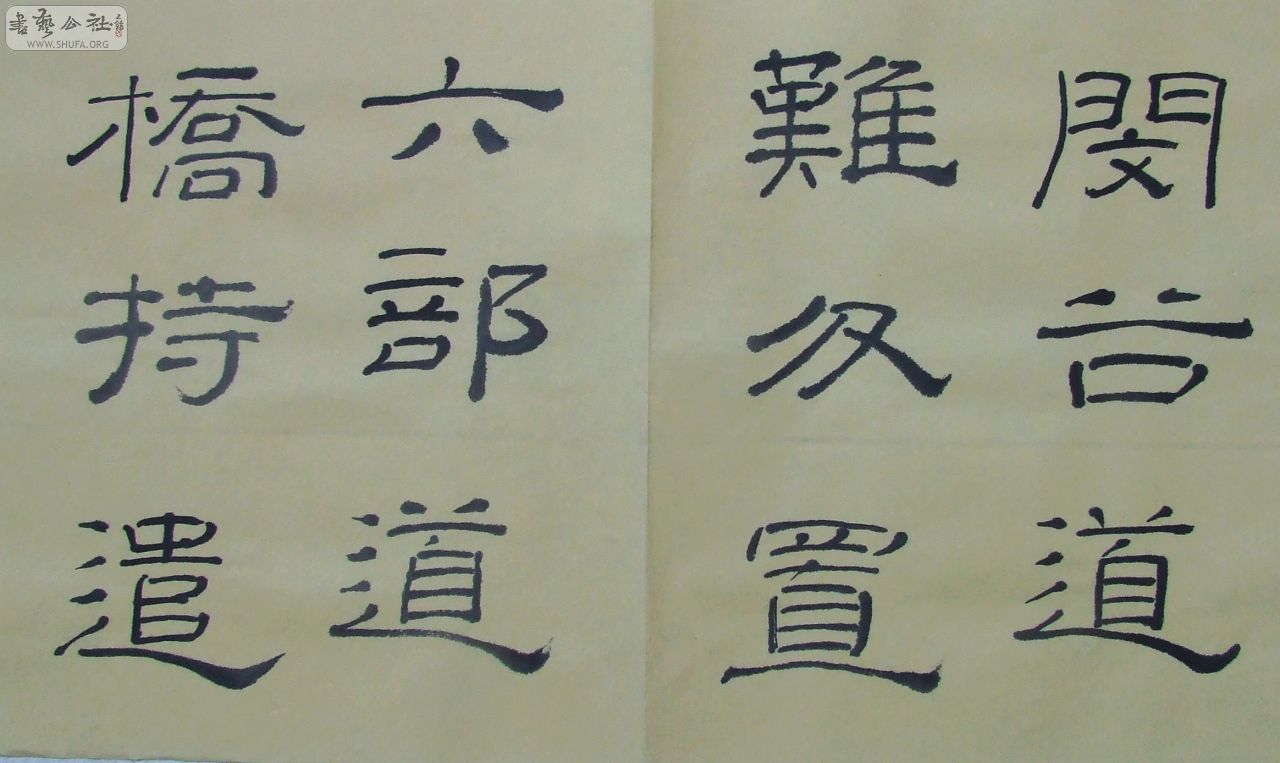 書藝公社
WWW.SHUFA.ORG
閔谷道
難分置
六部道
橋持遣